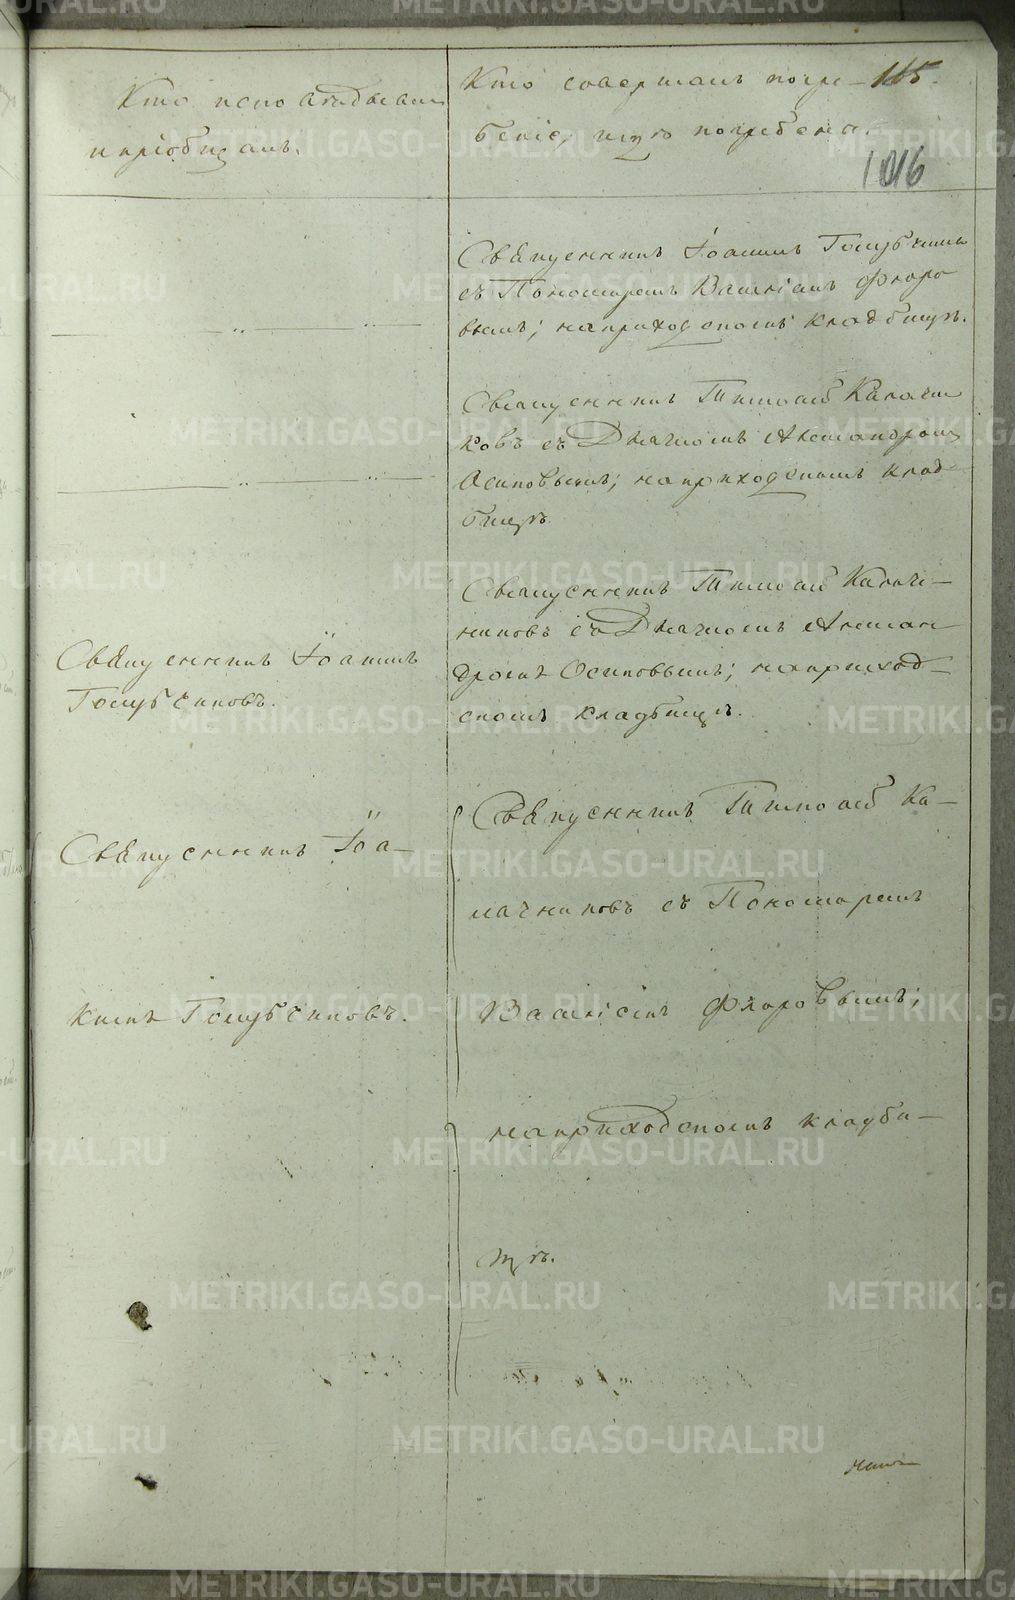 Кто исповѣдывалъ
и пріобщалъ.
Кто совершалъ погре- 115.
беніе, и гдѣ погребены.
1016
Священникъ Іоаннъ Голубчиков
съ Пономаремъ Василіемъ Флоро
вымъ; на приходскомъ кладбищѣ.
Священникъ Тимоѳей Калачни
ковъ съ Діакономъ Александромъ
Осиповымъ; на приходскомъ клад-
бищѣ
Священникъ Тимоѳей Калач-
никовъ съ Діакономъ Алексан
дромъ Осиповымъ; на приход-
скомъ кладбищѣ.
Священникъ Іоаннъ
Голубчиковъ.
Священникъ Іоа-
ннъ Голубчиковъ.
Священникъ Тимоѳей Ка-
лачниковъ съ Пономаремъ
Василіемъ Флоровымъ;
на приходскомъ кладби-
щѣ.
METRIKI.GASO-URAL.RU